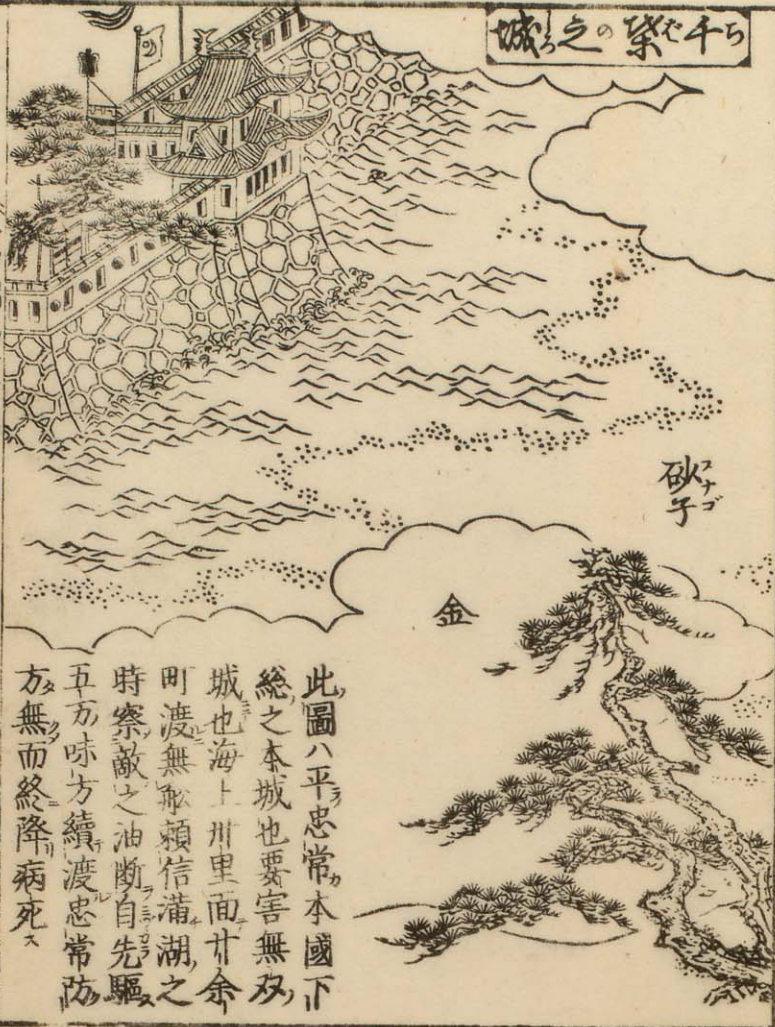 千葉の之城
砂子
スナゴ
金
此圖ハ平忠常本國下
総之本城也要害無双
城也海上卅里面廿余
町渡無舩頼信満湖之
時察敵之油断自先驅
五万味方續渡忠常防
方無而終降病死ス